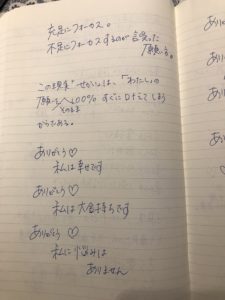 充足にフォーカス。
不足にフォーカスするのが 言葉った
願いる。
この現実"せかい"は、「わたし」の
願いへ100% すぐに してしまう
そのまま
からである。
ありがとう♡
私は幸せです
ありがとう♡
私は大金持ちです
ありがとう♡
私に悩みは
ありません
ありがと